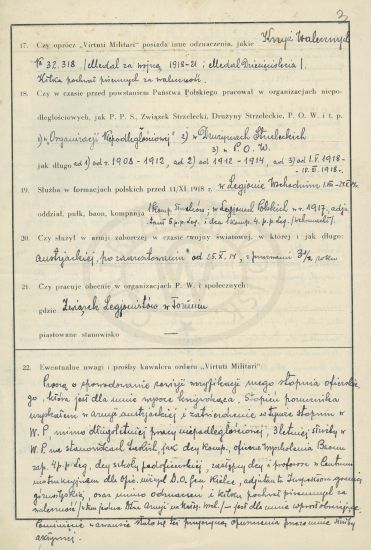 3
17. Czy oprócz „Virtuti Militari” posiada inne odznaczenia, jakie Krzyż Walecznych
№ 32.318 /Medal za wojnę 1918-21 i Medal Dziesięciolecia/
Kilka pochwał pisemnych za waleczność.
18. Czy w czasie przed powstaniem Państwa Polskiego pracował w organizacjach niepo-
dległościowych, jak P. P. S., Związek Strzelecki, Drużyny Strzeleckie, P. O. W. i t. p.
1) w Organizacji Niepodległościowej 2) w Drużynach Strzeleckich
3) w P.O.W.
jak długo ad 1) od r. 1908-1912, ad 2) od 1912-1914, ad 3) od 1.V.1918-
1918.
19. Służba w formacjach polskich przed 11/XI. 1918 r. w Legjonie Wschodnim
oddział, pułk, baon, kompanja w Legjonach Polskich w r. 1917, adju-
tant
20. Czy służył w armji zaborczej w czasie wojny światowej, w której i jak długo:
Austrjackiej, po zaaresztowaniu od 25.X.14, z przerwami 3½ roku
21. Czy pracuje obecnie w organizacjach P. W. i społecznych:
gdzie Związek Legjonistów w Toruniu
piastowane stanowisko —
22. Ewentualne uwagi i prośby kawalera orderu „Virtuti Militari”
Proszę o spowodowanie rewizji weryfikacji mego stopnia oficerskie-
go, która jest dla mnie wysoce krzywdząca. Stopień porucznika
uzyskałem w armji austrjackiej i zatwierdzenie w tymże stopniu w
W.P. mimo długoletniej pracy niepodległościowej, 3 letniej służby w
W.P. na stanowiskach jak dcy komp., oficera wyszkolenia Baonu
zap. 4 p.p. leg., dcy szkoły podoficerskiej, zastępcy dcy i profesora w Centrum
instrukcyjnem dla Ofic. D.O. Gen. Kielce, adjutanta Inspektora granicy
górnośląskiej, oraz mimo odznaczeń i kilku pochwał pisemnych za
waleczność jest dla mnie
Pominięcie stało się